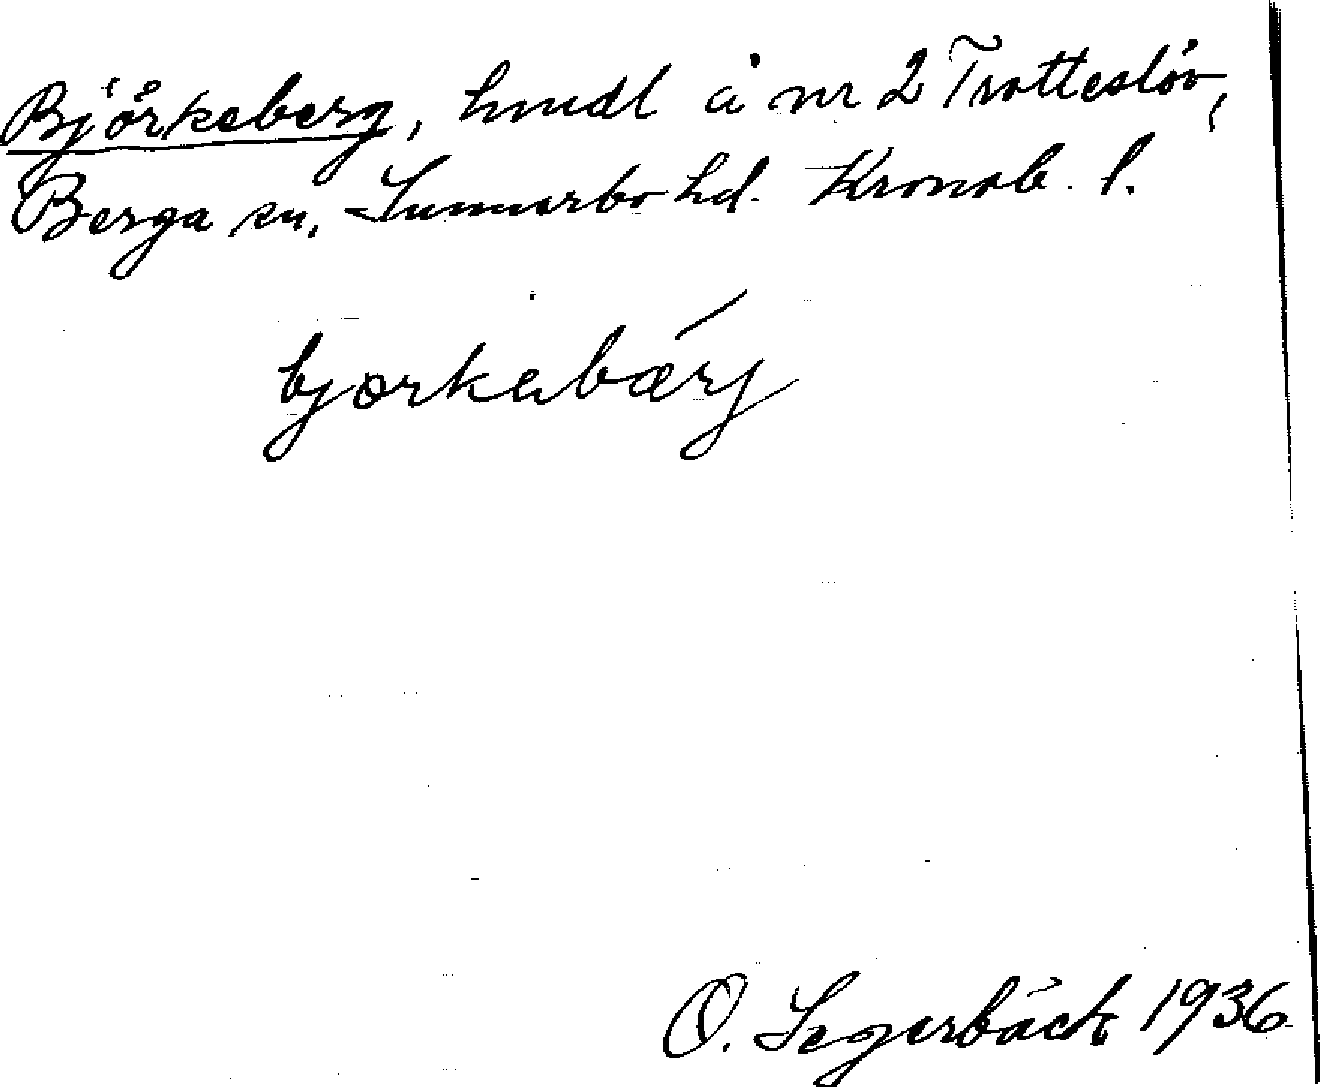 Björkeberg, hmdl å nr 2 Trotteslöv,
Berga sn, Sunnerbo hd. Kronob. l.
bjørkebærj
O. Segerbäck 1936